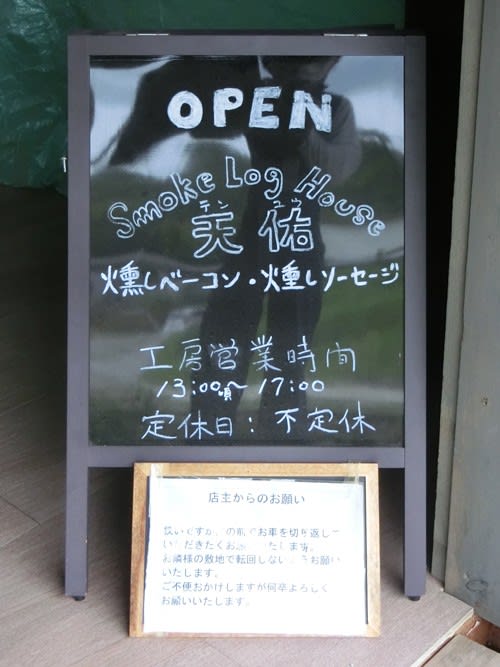 OPEN
Smoke Log House
テン ユウ
天佑
燻しベーコン・燻しソーセージ
工房営業時間
13:00頃~17:00
定休日:不定休
店主からのお願い
狭いですが、の前でお車を切り返して
いただきたくお願いいたします。
お隣様の敷地で転回しないようお願い
いたします。
ご不便おかけしますが何卒よろしく
お願いいたします。